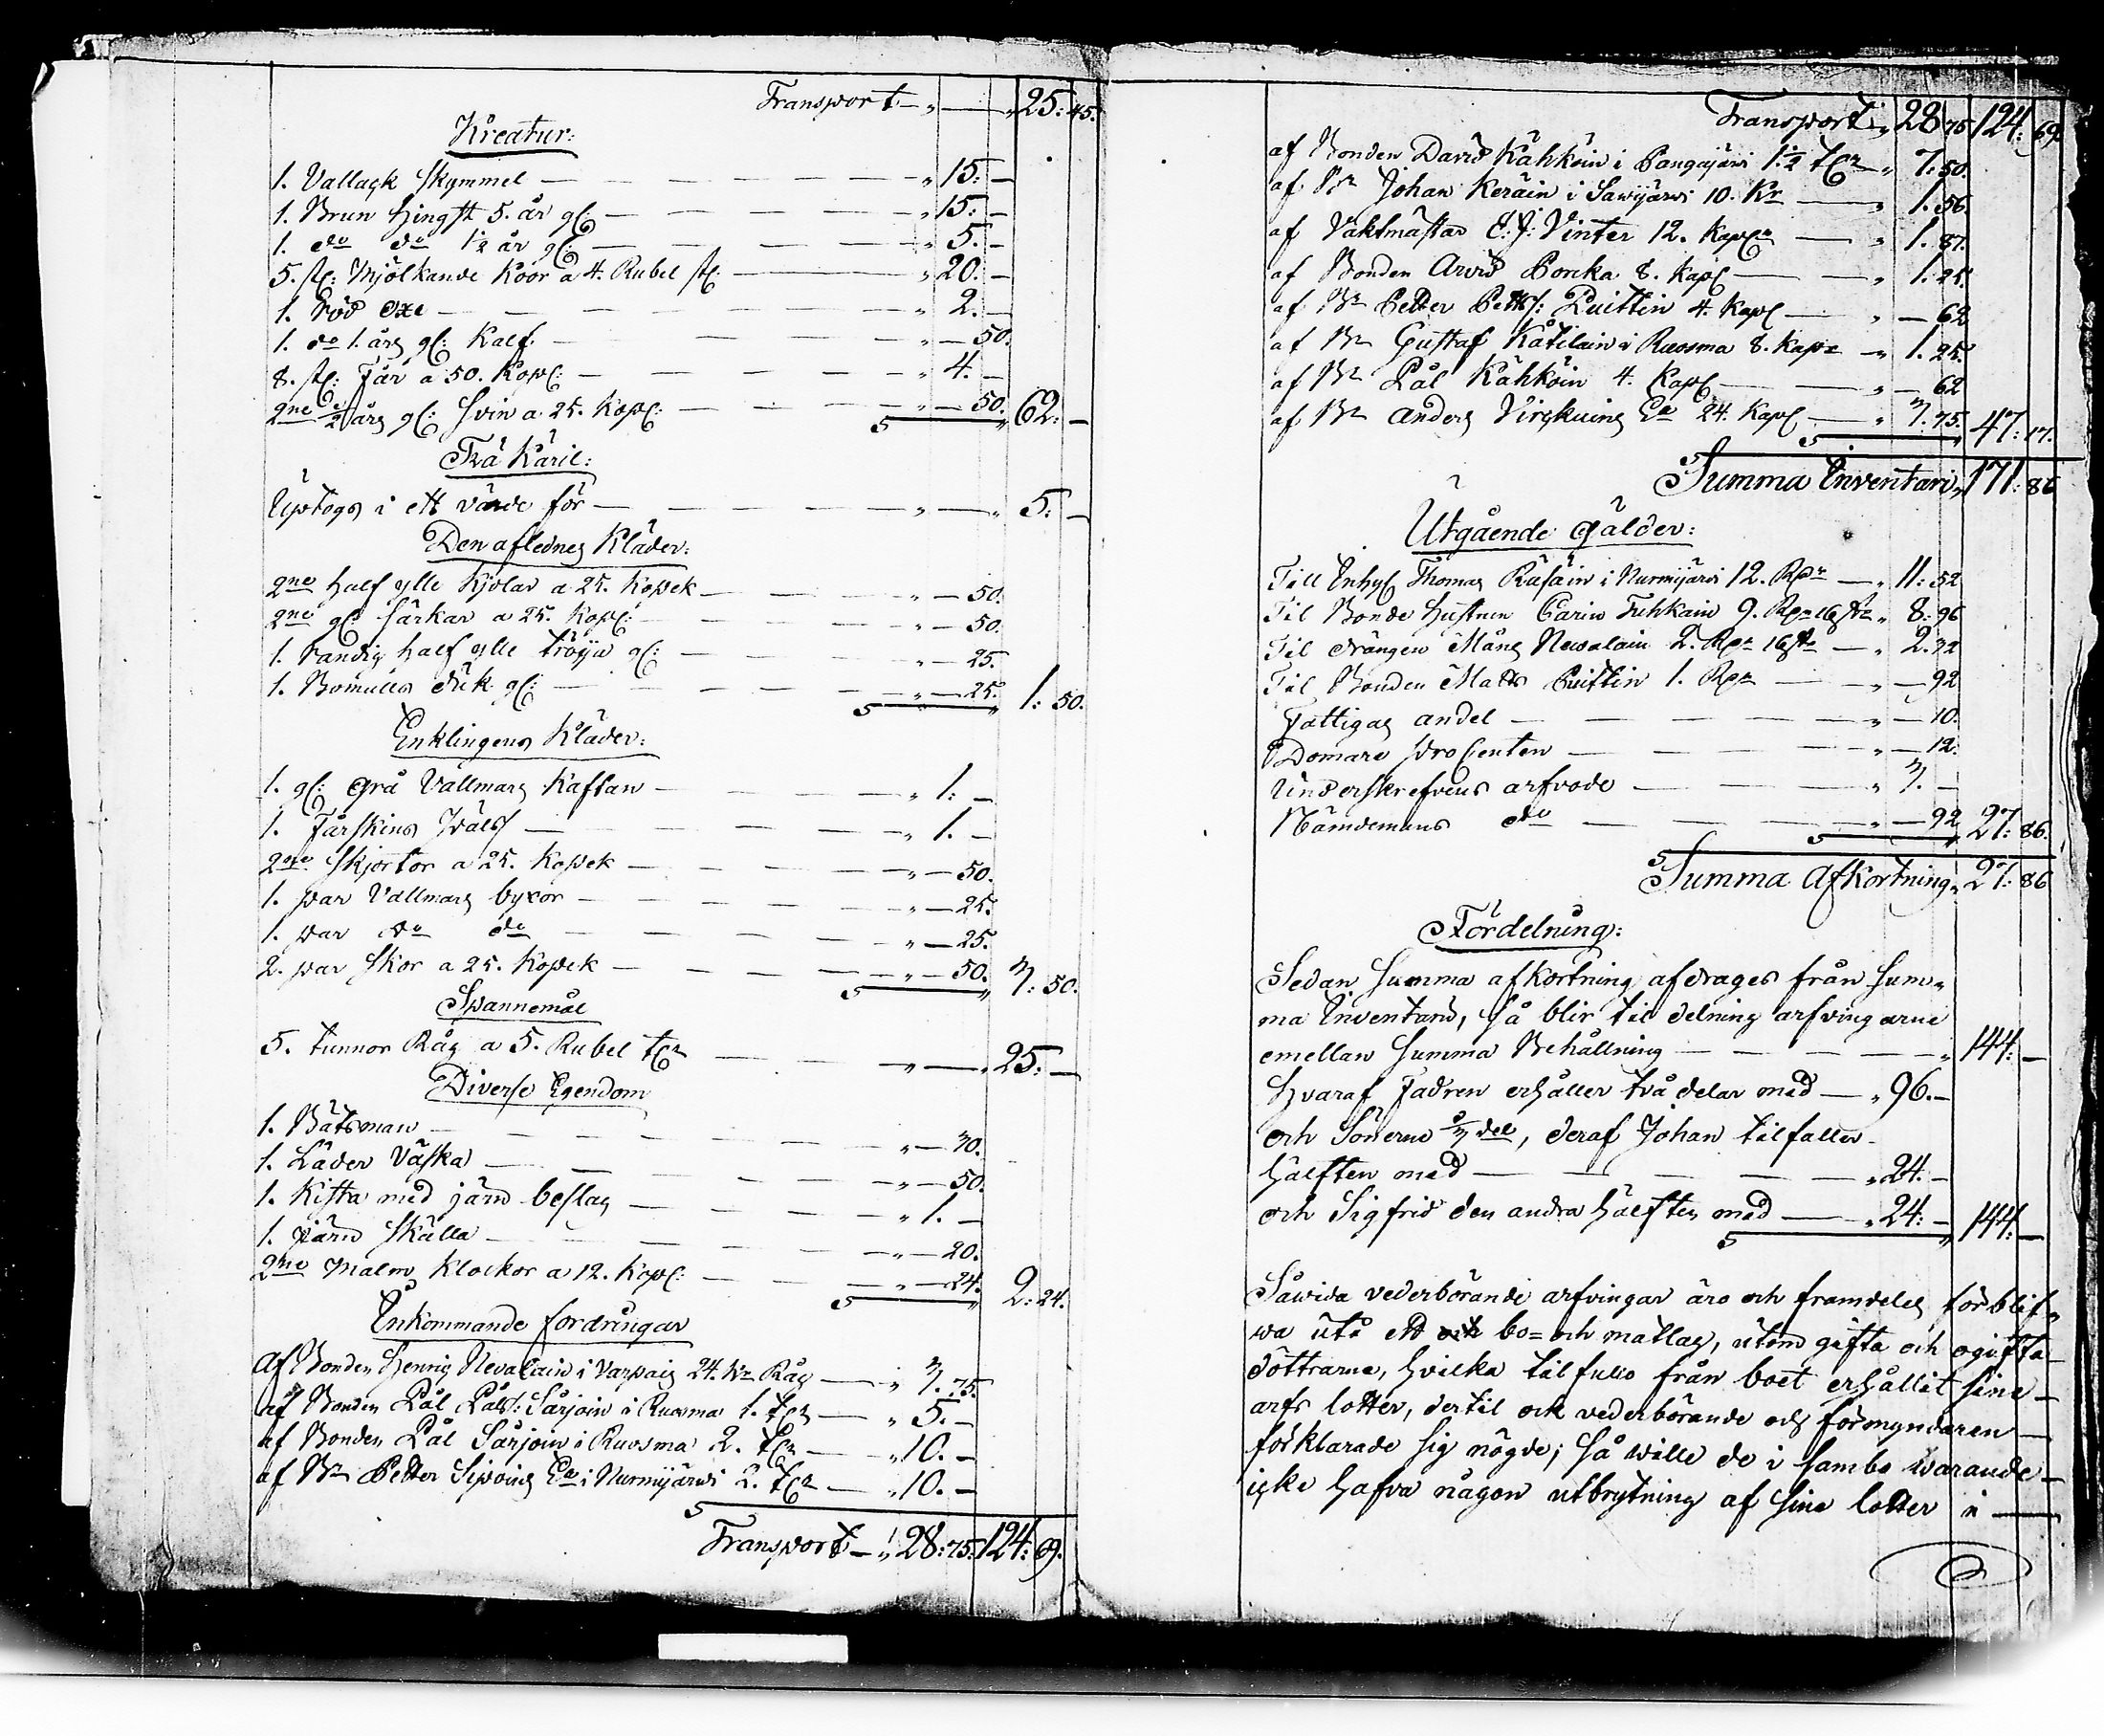 Transport — " — " 25: 45.
Kreatur:
1. Vallack Skymmel — " 15: —
1. Brun Hingst 5. år gl: — " 15: —
1. do do 1½ år gl: — " 5. —
5. st: Mjölkande Koor a 4. Rubel st — " 20. —
1. röd oxe — " 2. —
1. do 1. års gl: Kalf — " — 50.
8. st: Får a 50. Kop: — " 4. —
2ne ½ års gl: Svin a 25. Kop: — " — 50. 62: —
Trä Käril:
Uptogs i ett värde för — " — " 5: —
Den aflednes Kläder:
2ne half ylle Kjolar a 25. Kopek — " — 50.
2ne gl: Särkar a 25. Kop: — " — 50.
1. randig half ylle tröija gl: — " — 25.
1. Bomulls duk gl: — " — 25. 1: 50.
Enklingens Kläder:
1. gl: Grå Vallmars Kaftan — " 1: —
1. Fårskins Päls — " 1. —
2ne Skjortor a 25. Kopek — " — 50.
1. par Vallmars byxor — " — 25.
1. par do do — " — 25.
2. par Skor a 25. Kopek — " — 50. 3: 50.
Spannemål
5. tunnor Råg a 5. Rubel — " — " 25: —
Diverse Egendom
1. Båtsman — " — 30.
1. Läder Väska — " — 50.
1. Kista med järn beslag — " 1. —
1. järn Skälla — " — 20.
2ne malm Klockor a 12. Kop: — " — 24. 2: 24.
Inkommande fordringar
Af Bonden Henric Nevalain i Varpais 24. Kr Råg — " 3. 75.
af Bonden Pål Påls: Sarjoin i Ruosma 1. — " 5. —
af Bonden Pål Sarjoin i Ruosma 2. — " 10. —
af Bn Petter Sipoins Ea i Nurmijärvi 2. — " 10. —
Transport — " 28: 75. 124: 69.
Transport " 28 75 124: 69.
af Bonden David Kähköin i Pangajärvi 1½ — " 7: 50.
af Bn Johan Keräin i Sawijärwi 10. Kr — " 1. 56.
af Vaktmästar E: J: Vinter 12. Kap — " 1. 87.
af Bonden Arvid Poncka 8. Kap — " 1. 25.
af Bn Petter Petts: Puittin 4. Kap — " — 62
af Bn Gustaf Kätilain i Ruosma 8. Kap — " 1. 25.
af Bn Pål Kähköin 4. Kap — " — 62
af Bn Anders Virskuins Ea 24. Kap — " 3. 75. 47: 17.
Summa Inventari " 171: 86
Utgående gälder:
Till Inhys Thomas Räsäin i Nurmijärvi 12. Rpr — " 11: 52
Til Bonde Hustrun Carin Tuhkain 9. Rpr 16 " 8: 96
Til drängen Måns Nevalain 2. Rpr 16 — " 2. 32
Til Bonden Matts Puittin 1. Rpr — " — 92
Fattigas andel — " — 10.
Domare procenten — " — 12.
Underskrefvens arfvode — " 3. —
Nämdemans do — " — 92 27: 86.
Summa Afkortning " 27: 86
Fördelning:
Sedan Summa afkortning afdrages från Sum=
ma Inventarii, så blir til delning arfvingarne
emellan Summa Behållning — " 144: —
Hvaraf Fadren erhåller två delar med — " 96. —
och Sönerne ⅓ del, deraf Johan tilfaller
hälften med — " 24. —
och Sigfrid den andra hälften med — " 24: — 144: —
Såvida vederbörande arfvingar äro och framdeles förblif=
va uti ett bo= och matlag, utom gifta och ogifta
döttrarne, hvilka til fullo från boet erhållit sine
arfs lotter, dertil ock vederbörande och förmyndaren
förklarade sig nögde; så wille de i sambo warande
icke hafva någon utbrytning af sine lotter i —